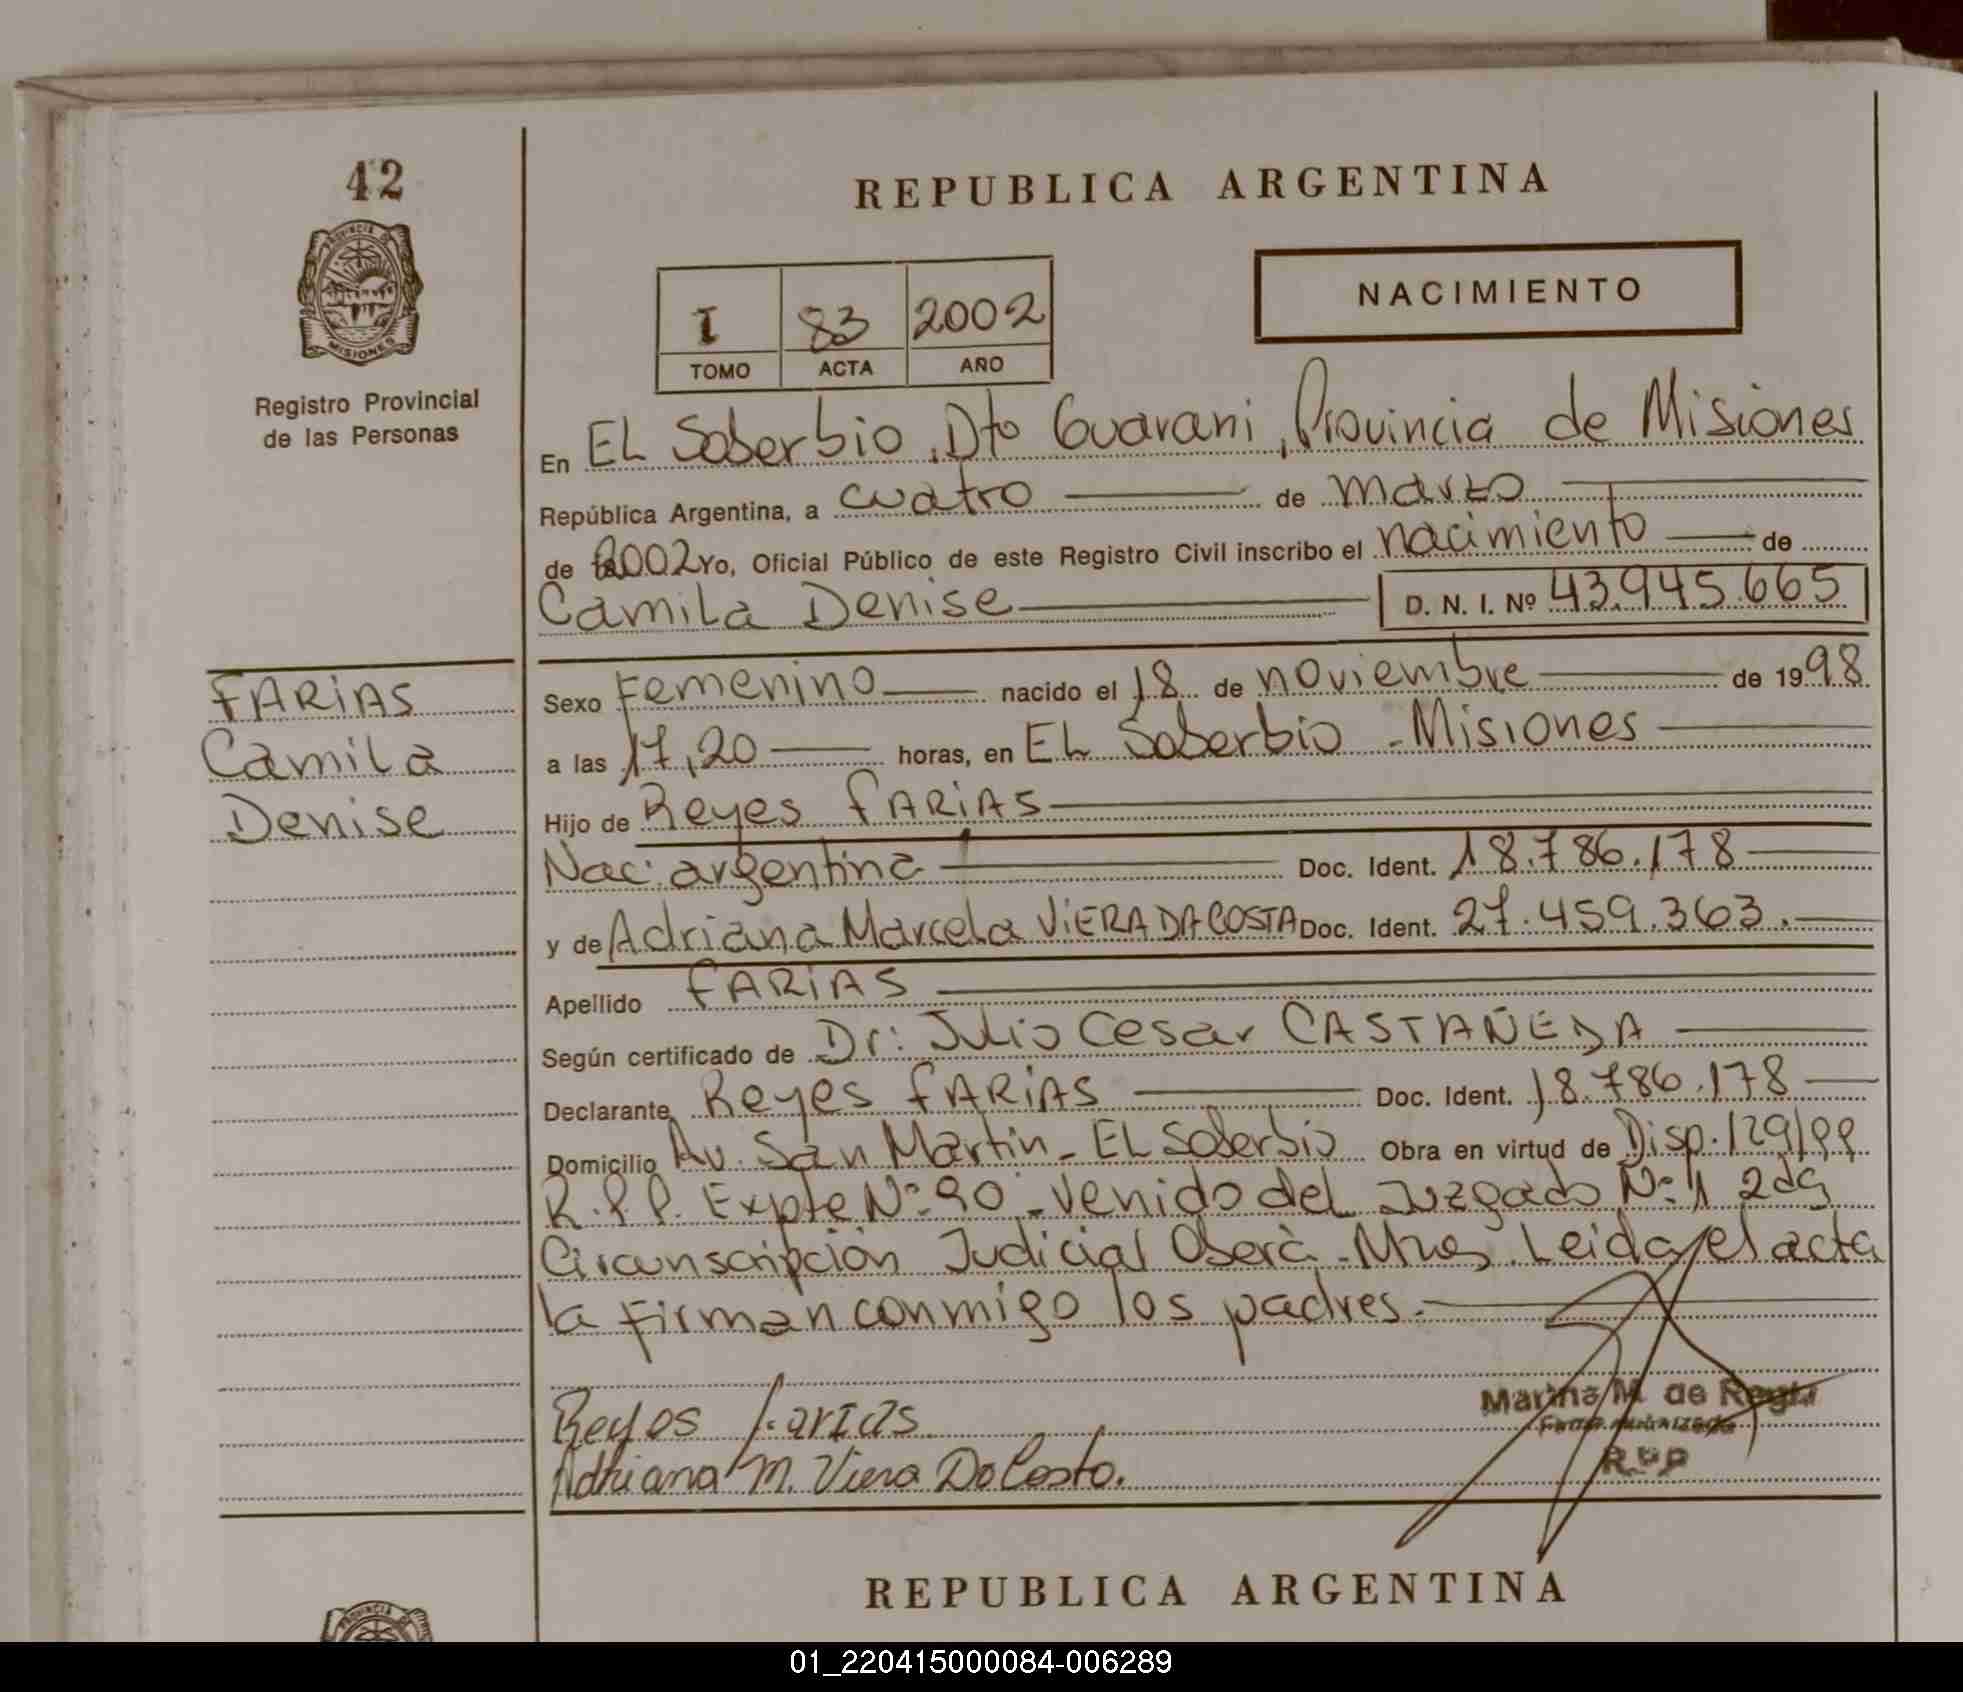 42
PROVINCIA DE
MISIONES
Registro Provincial
de las Personas
REPUBLICA ARGENTINA
NACIMIENTO
I 83 2002
TOMO ACTA AÑO
En EL Soberbio, Dto Guarani, Provincia de Misiones
República Argentina, a cuatro de marzo
de 2002 Yo, Oficial Público de este Registro Civil inscribo el nacimiento de
Camila Denise D. N. I. Nº 43.945.665
FARIAS
Camila
Denise
Sexo Femenino nacido el 18 de noviembre de 1998
a las 17,20 horas, en EL Soberbio - Misiones
Hijo de Reyes FARIAS
Nac: argentina Doc. Ident. 18.786.178
y de Adriana Marcela VIERA DA COSTA Doc. Ident. 27.459.363.
Apellido FARIAS
Según certificado de Dr: Julio Cesar CASTAÑEDA
Declarante Reyes FARIAS Doc. Ident. 18.786.178
Domicilio Av. San Martin - EL Soberbio Obra en virtud de Disp. 129/99
R.P.P. Expte Nº 90 - venido del Juzgado Nº 1 2da
Circunscripción Judicial Oberà - Mnes. Leida el acta
la firman conmigo los padres.
Reyes farias
Adriana M. Viera Da Costa.
Marina M. de
R P P
REPUBLICA ARGENTINA
PROVINCIA DE
01_220415000084-006289